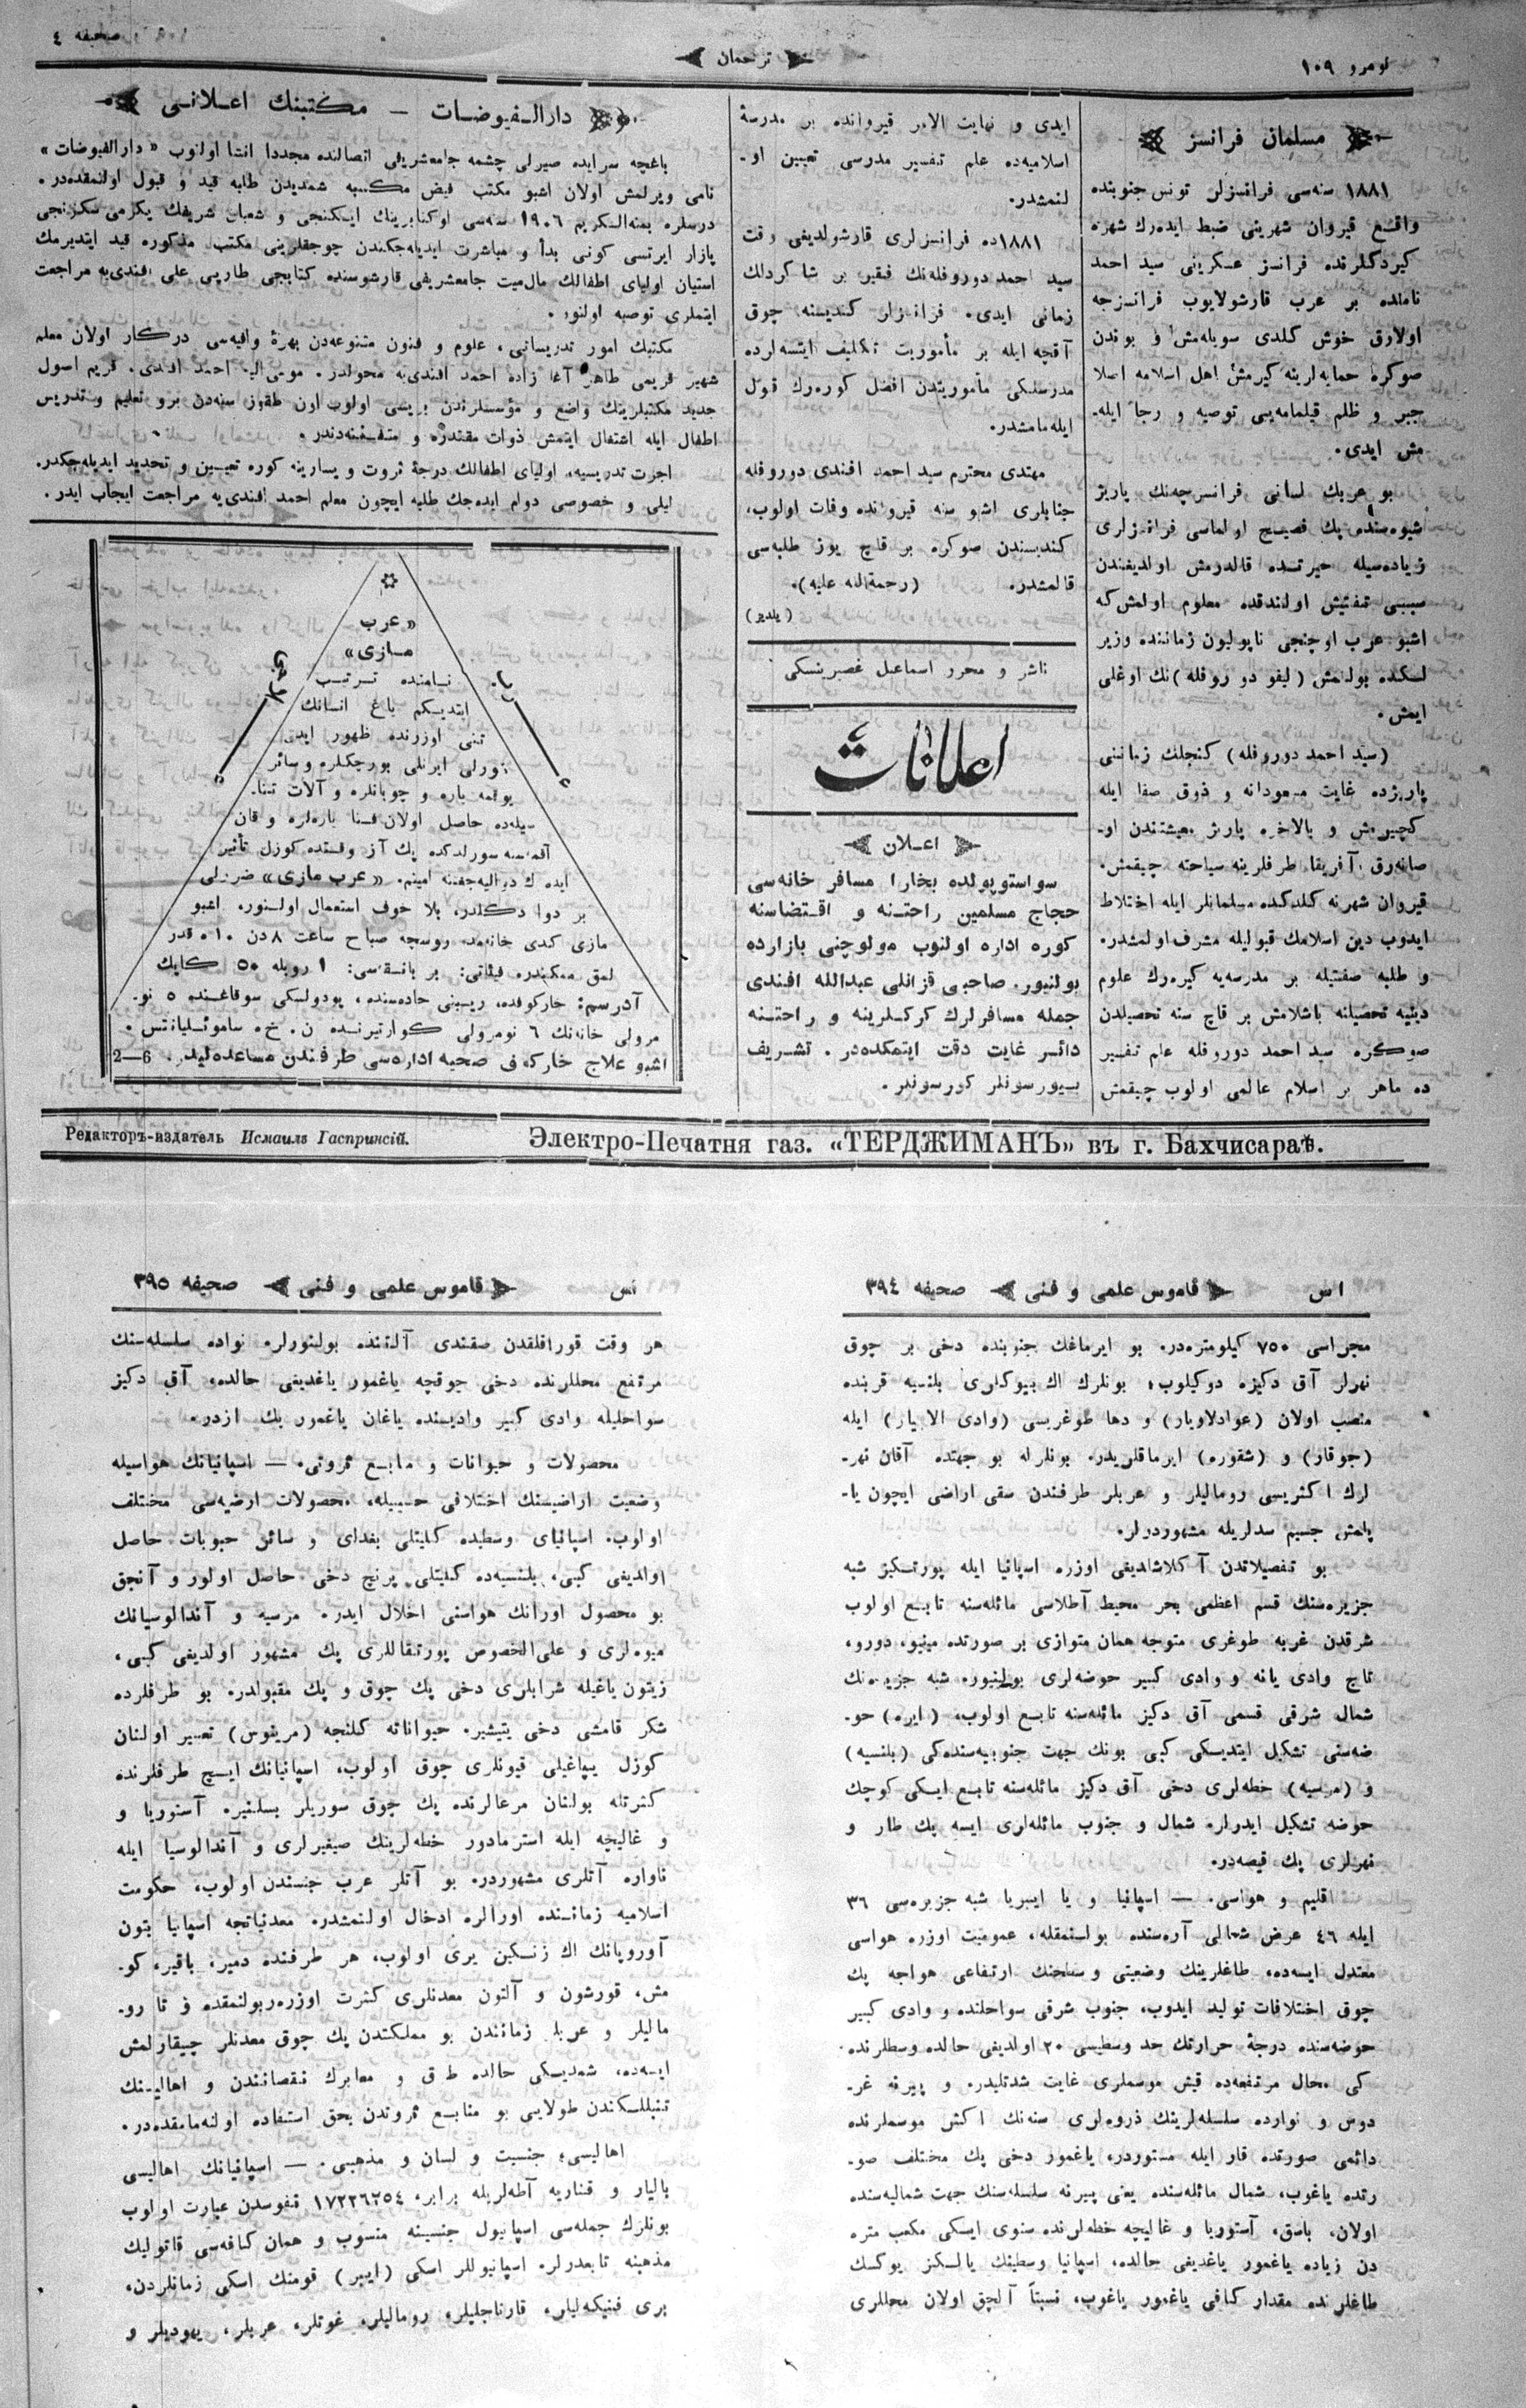 نومرو ١٠٩
ترجمان
صحيفه ٤
مسلمان فرانسز
١٨٨١ سنه‌سى فرانسزلر تونس جنوبنده
واقع قيروان شهرينى ضبط ايده‌رك شهره
كيردكلرنده فرانسز عسكرينى سيد احمد
نامنده بر عرب قارشولايوب فرانسزجه
اولارق خوش كلدى سويله‌مش و بوندن
صوكره حمايه‌لرينه كيرمش اهل اسلامه اصلا
جبر و ظلم قيلمامه‌يى توصيه و رجا ايله‌-
مش ايدى.
بو عربك لسانى فرانسزچه‌نك پاريز
شيوه‌سنده پك فصيح اولماسى فرانسزلرى
زياده‌سيله حيرتده قالدرمش اولديغندن
سببى تفتيش اولندقده معلوم اولمش كه
اشبو عرب اوچنجى ناپوليون زماننده وزير
لسكده بولنمش (ليفو دو روفله)نك اوغلى
ايمش.
(سيد احمد دوروفله) كنجلك زماننى
پاريزده غايت مسعودانه و ذوق صفا ايله
كچيرمش و بالاخره پاريز معيشتندن او-
صانه‌رق آفريقا طرفلرينه سياحته چيقمش.
قيروان شهرنه كلدكده مسلمانلر ايله اختلاط
ايدوب دين اسلامك قبوليله مشرف اولمشدر.
و طلبه صفتيله بر مدرسه‌يه كيره‌رك علوم
دينيه تحصيلنه باشلامش بر قاچ سنه تحصيلدن
صوكره سيد احمد دوروفله علم تفسير
ده ماهر بر اسلام عالمى اولوب چيقمش
ايدى و نهايت الامر قيروانده بر مدرسهٔ
اسلاميه‌ده علم تفسير مدرسى تعيين او-
لنمشدر.
١٨٨١ده فرانسزلرى قارشولديغى وقت
سيد احمد دوروفله‌نك فقير بر شاكردلك
زمانى ايدى. فرانسزلر كنديسنه چوق
آقچه ايله بر مأموريت تكليف ايتسه‌لرده
مدرسلكى مأموريتدن افضل كوره‌رك قبول
ايله‌مامشدر.
مهتدى محترم سيد احمد افندى دوروفله
جنابلرى اشبو سنه قيروانده وفات اولوب،
كنديسندن صوكره بر قاچ يوز طلبه‌سى
قالمشدر. (رحمةالله عليه).
(يلديز)
ناشر و محررى اسماعيل غصپرينسكى
اعلانات
اعلان
سواستوپولده بخارا مسافر خانه‌سى
حجاج مسلمين راحتنه و اقتضاسنه
كوره اداره اولنوب مولوچنى بازارده
بولنيور. صاحبى قزانلى عبدالله افندى
جمله مسافرلرك كركلرينه و راحتنه
دائر غايت دقت ايتمكده‌در. تشريف
بيورسونلر كورسونلر.
دارالفيوضات — مكتبنك اعلانى
باغچه سرايده صيرلى چشمه جامعشريفى اتصالنده مجددا انشا اولنوب «دارالفيوضات»
نامى ويرلمش اولان اشبو مكتب فيض مكسبه شمديدن طلبه قيد و قبول اولنمقده‌در.
درسلره بمنه‌الكريم ١٩٠٦ سنه‌سى اوكتابرينك ايكنجى و شعبان شريفك يكرمى سكزنجى
پازار ايرتسى كونى بدأ و مباشرت ايديله‌جكندن چوجقلرينى مكتب مذكوره قيد ايتديرمك
استيان اولياى اطفالك جامعشريفى قارشوسنده كتابجى طارپى على افندى‌يه مراجعت
ايتملرى توصيه اولنور.
مكتبك امور تدريساتى، علوم و فنون متنوعه‌دن بهرهٔ وافيه‌سى دركار اولان معلم
شهير قريمى طاهر آغا زاده احمد افندى‌يه محولدر. مومى‌اليه احمد افندى، قريم اصول
جديد مكتبلرينك واضع و مؤسسلرندن بريسى اولوب اون طقوز سنه‌دن برو تعليم و تدريس
اطفال ايله اشتغال ايتمش ذوات مقتدره و متفننه‌دندر.
اجرت تدريسيه، اولياى اطفالك درجهٔ ثروت و يسارينه كوره تعيين و تحديد ايديله‌جكدر.
ليلى و خصوصى دوام ايده‌جك طلبه ايچون معلم احمد افندى‌يه مراجعت ايجاب ايدر.
«عرب
مازى»
نامنده ترتيب
ايتديكم ياغ انسانك
تنى اوزرنده ظهور ايدن
تورلى ايرنلى بورجكلره و سائر
آدرسم: خاركوفده، ريبنى جاده‌سنده، پودولسكى سوقاغنده ٥ نو-
مرولى خانه‌نك ٦ نومرولى كوارتيرنده ن. خ. ساموئيليانتس.
اشبو علاج خاركوف صحيه اداره‌سى طرفندن مساعده‌ليدر. 2—6
Редакторъ-издатель Исмаилъ Гаспринсій.
Электро-Печатня газ. «ТЕРДЖИМАНЪ» въ г. Бахчисараѣ.
اس
قاموس علمى و فنى
صحيفه ٣٩٤
مجراسى ٧٥٠ كيلومتره‌در. بو ايرماغك جنوبنده دخى بر چوق
نهرلر آق دكيزه دوكيلوب، بونلرك اك بيوكلرى بلنسيه قربنده
منصب اولان (غوادلاويار) و دها طوغريسى (وادى الابيار) ايله
(جوقار) و (شقوره) ايرماقلريدر. بونلرله بو جهتده آقان نهر-
لرك اكثريسى روماليلر و عربلر طرفندن سقى اراضى ايچون يا-
پلمش جسيم سدلريله مشهوردرلر.
بو تفصيلاتدن آكلاشلديغى اوزره اسپانيا ايله پورتكيز شبه
جزيره‌سنك قسم اعظمى بحر محيط آطلاسى مائله‌سنه تابع اولوب
شرقدن غربه طوغرى متوجه همان متوازى بر صورتده مينيو، دورو،
تاج وادى يانه و وادى كبير حوضه‌لرى بولنيور. شبه جزيره‌نك
شمال شرقى قسمى آق دكيز مائله‌سنه تابع اولوب، (ايره) حو-
ضه‌سنى تشكيل ايتديكى كبى بونك جهت جنوبيه‌سنده‌كى (بلنسيه)
و (مرسيه) خطه‌لرى دخى آق دكيز مائله‌سنه تابع ايكى كوچك
حوضه تشكيل ايدرلر. شمال و جنوب مائله‌لرى ايسه پك طار و
نهرلرى پك قيصه‌در.
اقليم و هواسى. — اسپانيا و يا ايبريا شبه جزيره‌سى ٣٦
ايله ٤٦ عرض شمالى آره‌سنده بولنمقله، عموميت اوزره هواسى
معتدل ايسه‌ده، طاغلرينك وضعيتى و سطحنك ارتفاعى هواجه پك
چوق اختلافات توليد ايدوب، جنوب شرقى سواحلنده و وادى كبير
حوضه‌سنده درجهٔ حرارتك حد وسطيسى ٢٠ اولديغى حالده وسطلرنده-
كى محال مرتفعه‌ده قيش موسملرى غايت شدتليدر. و پيرنه غر-
دوس و نواره‌ده سلسله‌لرينك ذروه‌لرى سنه‌نك اكثر موسملرنده
دائمى صورتده قار ايله مستوردر، ياغمور دخى پك مختلف صو-
رتده ياغوب، شمال مائله‌سنده يعنى پيرنه سلسله‌سنك جهت شماليه‌سنده
اولان، باسق، آستوريا و غاليچه خطه‌لرنده سنوى ايكى مكعب متره
دن زياده ياغمور ياغديغى حالده، اسپانيا وسطينك يالكز يوكسك
طاغلرنده مقدار كافى ياغمور ياغوب، نسبتاً آلچق اولان محللرى
اس
قاموس علمى و فنى
صحيفه ٣٩٥
هر وقت قوراقلقدن صقندى آلتنده بولنورلر. نواده سلسله‌سنك
مرتفع محللرنده دخى چوقچه ياغمور ياغديغى حالده، آق دكيز
سواحليله وادى كبير واديسنده ياغان ياغمور پك ازدر.
محصولات و حيوانات و منابع ثروتى. — اسپانيانك هواسيله
وضعيت اراضيسنك اختلافى حسبيله، محصولات ارضيه‌سى مختلف
اولوب. اسپانياى وسطيده كليتلى بغداى و سائر حبوبات حاصل
اولديغى كبى، بلنسيه‌ده كليتلى پرنچ دخى حاصل اولور و آنجق
بو محصول اورانك هواسنى اخلال ايدر. مرسيه و آندالوسيانك
ميوه‌لرى و على‌الخصوص پورتقاللرى پك مشهور اولديغى كبى،
زيتون ياغيله شرابلرى دخى پك چوق و پك مقبولدر. بو طرفلرده
شكر قامشى دخى يتيشير. حيواناته كلنجه (مرينوس) تعبير اولنان
كوزل يپاغيلى قيونلرى چوق اولوب، اسپانيانك ايچ طرفلرنده
كثرتله بولنان مرعالرنده پك چوق سوريلر بسلنير. آستوريا و
و غاليچه ايله استرمادور خطه‌لرينك صيغيرلرى و آندالوسيا ايله
ناواره آتلرى مشهوردر. بو آتلر عرب جنسندن اولوب، حكومت
اسلاميه زماننده اورالره ادخال اولنمشدر. معدنياتجه اسپانيا بتون
آوروپانك اك زنكين يرى اولوب، هر طرفنده دمير، باقير، كو-
مش، قورشون و آلتون معدنلرى كثرت اوزره‌ربولنمقده و تا رو-
ماليلر و عربلر زمانندن بو مملكتدن پك چوق معدنلر چيقارلمش
ايسه‌ده، شمديكى حالده طرق و معابرك نقصانندن و اهاليسنك
تنبللكندن طولايى بو منابع ثروتدن بحق استفاده اولنه‌مامقده‌در.
اهاليسى، جنسيت و لسان و مذهبى. — اسپانيانك اهاليسى
باليار و قناريه آطه‌لريله برابر، ١٧٢٢٦٢٥٤ نفوسدن عبارت اولوب
بونلرك جمله‌سى اسپانيول جنسينه منسوب و همان كافه‌سى قاتوليك
مذهبنه تابعدرلر. اسپانيوللر اسكى (ايبر) قومنك اسكى زمانلردن،
برى فنيكه‌ليلر، قارتاجليلر، روماليلر، غوتلر، عربلر، يهوديلر و